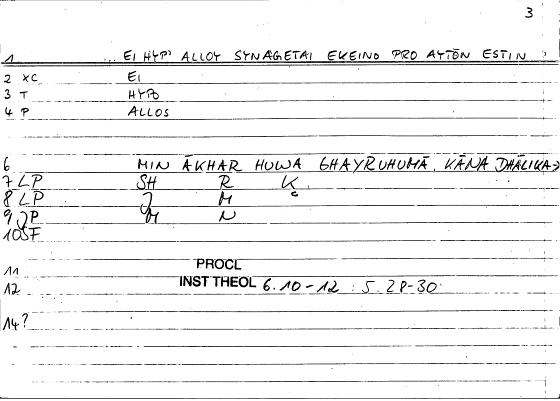 3
1 ... EI HYP' ALLOY SYNAGETAI EKEINO PRO AYTŌN ESTIN
2 XC EI
3 T HYPO
4 P ALLOS
6 MIN ĀKHAR HUWA GHAYRUHUMĀ, KĀNA DHĀLIKA>
7 LP SH R K
8 LP J M
9 JP M N
10 SF
11
PROCL
12 INST THEOL 6.10-12 : 5.28-30
14?